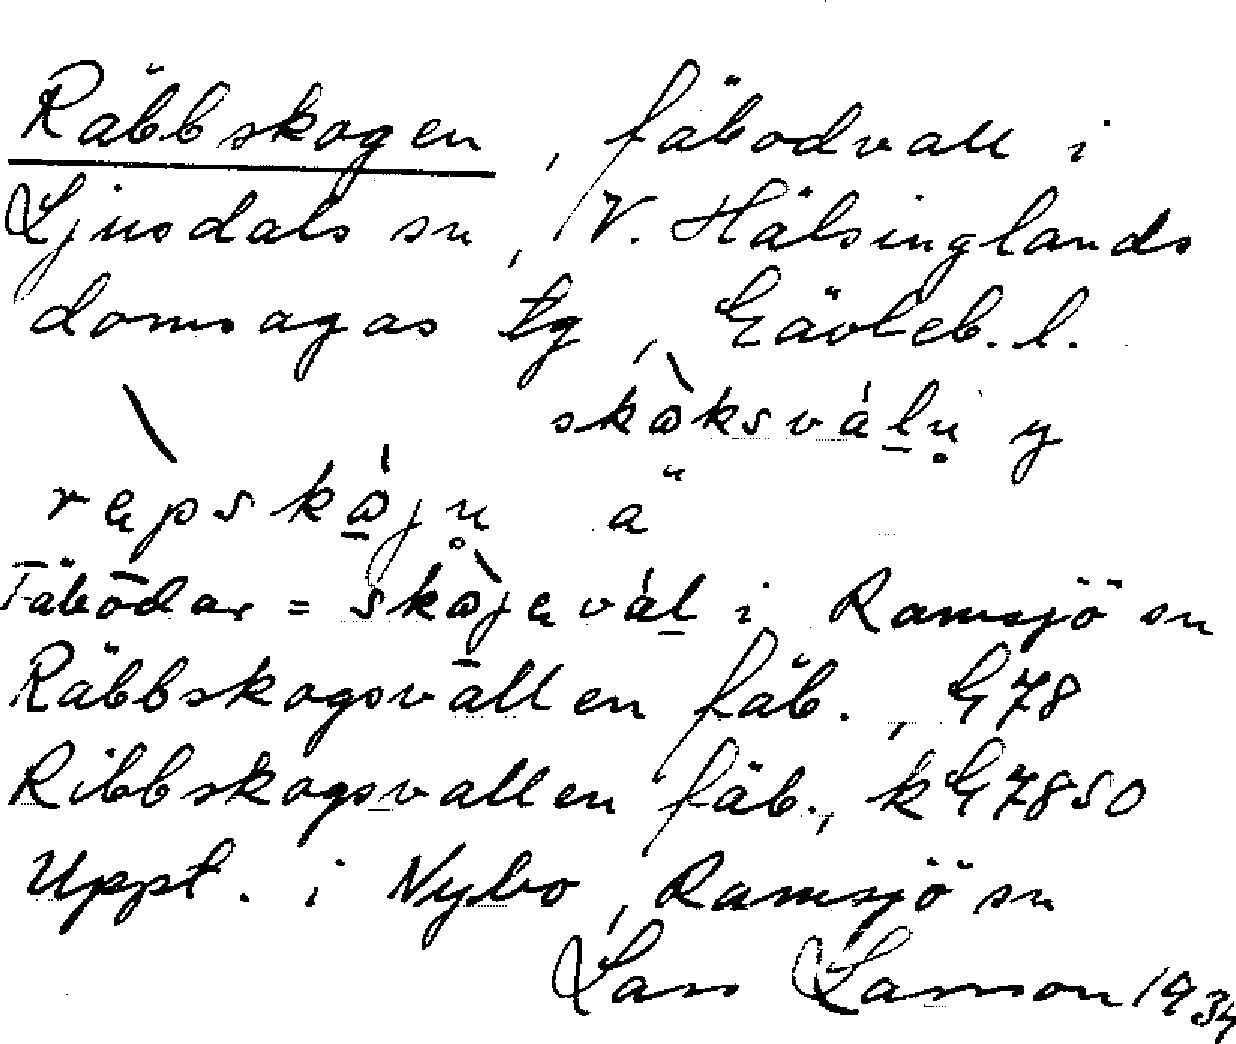 Räbbskogen, fäbodvall i
Ljusdals sn, V. Hälsinglands
domsagas tg, Gävleb. l.
skɷ̀ksváln̥ y
rępskɷ́jn̥ ä
Fäbodar = skɷ̀jęvál i Ramsjö sn
Räbbskogsvallen fäb., G78
Ribbskogsvallen fäb., kG7850
Uppt. i Nybo, Ramsjö sn
Lars Larsson 1934